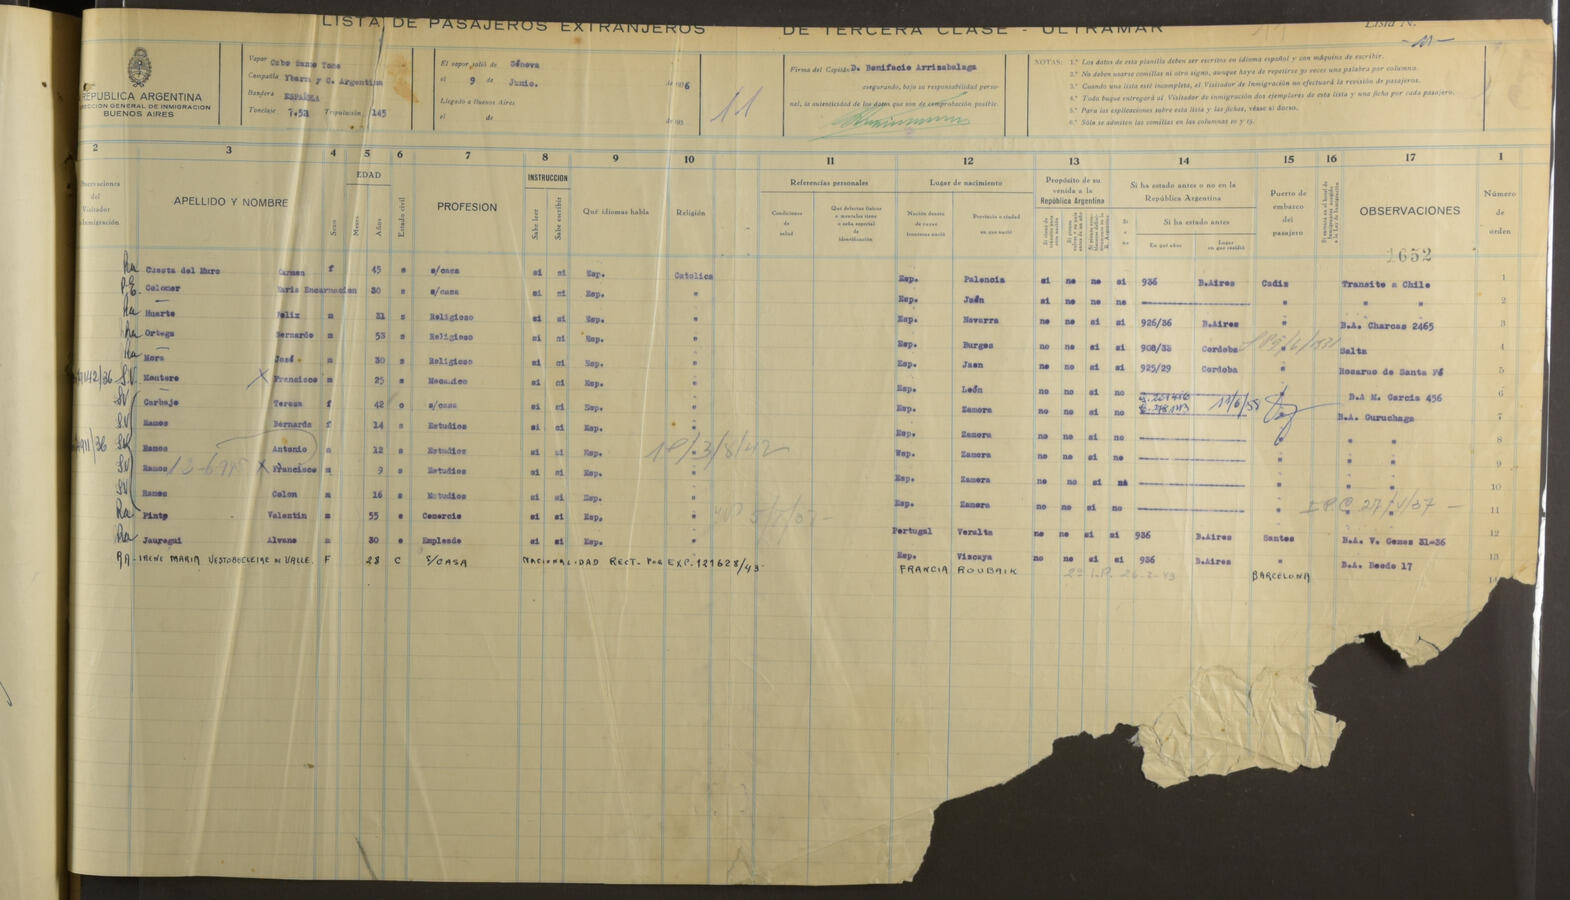 LISTA DE PASAJEROS EXTRANJEROS DE TERCERA CLASE - ULTRAMAR
REPUBLICA ARGENTINA
DIRECCION GENERAL DE INMIGRACION
BUENOS AIRES
Vapor Cabo Santo Tome
Compañia Ybarra y C. Argentina
Bandera ESPAÑOLA
Tonelaje Tripulación 145
El vapor salió de Génova
el 9 de Junio. de 1936
Llegado a Buenos Aires
el de de 193
11
Firma del Capitán D. Bonifacio Arrizabalaga
asegurando, bajo su responsabilidad perso-
nal, la autenticidad de los datos que son de comprobación posible.
NOTAS: 1.° Los datos de esta planilla deben ser escritos en idioma español y con máquina de escribir.
2.° No deben usarse comillas ni otro signo, aunque haya de repetirse 30 veces una palabra por columna.
3.° Cuando una lista esté incompleta, el Visitador de Inmigración no efectuará la revisión de pasajeros.
4.° Todo buque entregará al Visitador de inmigración dos ejemplares de esta lista y una ficha por cada pasajero.
5.° Para las explicaciones sobre esta lista y las fichas, véase al dorso.
6.° Sólo se admiten las comillas en las columnas 10 y 15.
2 3 4 5 6 7 8 9 10 11 12 13 14 15 16 17 1
Observaciones del Visitador Inmigración
APELLIDO Y NOMBRE
Sexo
EDAD
Meses
Años
Estado civil
PROFESION
INSTRUCCION
Sabe leer
Sabe escribir
Qué idiomas habla
Religión
Referencias personales
Condiciones de salud
Qué defectos físicos o mentales tiene o seña especial de identificación
Lugar de nacimiento
Nación dentro de cuyas fronteras nació
Provincia o ciudad en que nació
Propósito de su venida a la República Argentina
Si ha estado antes o no en la República Argentina
Si o no
Si ha estado antes
En qué años
Lugar en que residió
Puerto de embarco del pasajero
OBSERVACIONES
Número de orden
1652
Cuesta del Muro Carmen f 45 s s/casa si si Esp. Católica Esp. Palencia si no no si 936 B.Aires Cadiz Transito a Chile 1
Colomer Maria Encarnacion 30 s s/casa si si Esp. " Esp. Jaén si no no no " " " 2
Huarte Felix m 31 s Religioso si si Esp. " Esp. Navarra no no si si 926/36 B.Aires " B.A. Charcas 2465 3
Ortega Bernardo m 53 s Religioso si si Esp. " Esp. Burgos no no si si 908/35 Cordoba " Salta 4
Mora José m 30 s Religioso si si Esp. " Esp. Jaen no no si si 925/29 Cordoba Rosario de Santa Fé 5
Montero Francisco m 25 s Mecanico si si Esp. " Esp. León no no si no B.A M. Garcia 456 6
Carbajo Teresa f 42 c s/casa si si Esp. " Esp. Zamora no no si no 11/6/55 B.A. Guruchaga 7
Ramos Bernarda f 14 s Estudios si si Esp. " Esp. Zamora no no si no " " " 8
Ramos Antonio m 12 s Estudios si si Esp. " Esp. Zamora no no si no " " " 9
Ramos Francisco m 9 s Estudios si si Esp. " Esp. Zamora no no si no " " " 10
Ramos Colon m 16 s Estudios si si Esp. " Esp. Zamora no no si no " " 11
Pinto Valentin m 55 Comercio si si Esp. " Portugal no no si si 936 B.Aires Santos B.A. V. Gomez 31=36 12
Jauregui Alvano m 30 Empleado si si Esp. " Esp. Viscaya no no si si 936 B.Aires " B.A. Boedo 17 13
RA - IRENE MARIA DE VALLE. F 28 C S/CASA NACIONALIDAD RECT. POR EXP. 121628/43 FRANCIA ROUBAIX BARCELONA 14